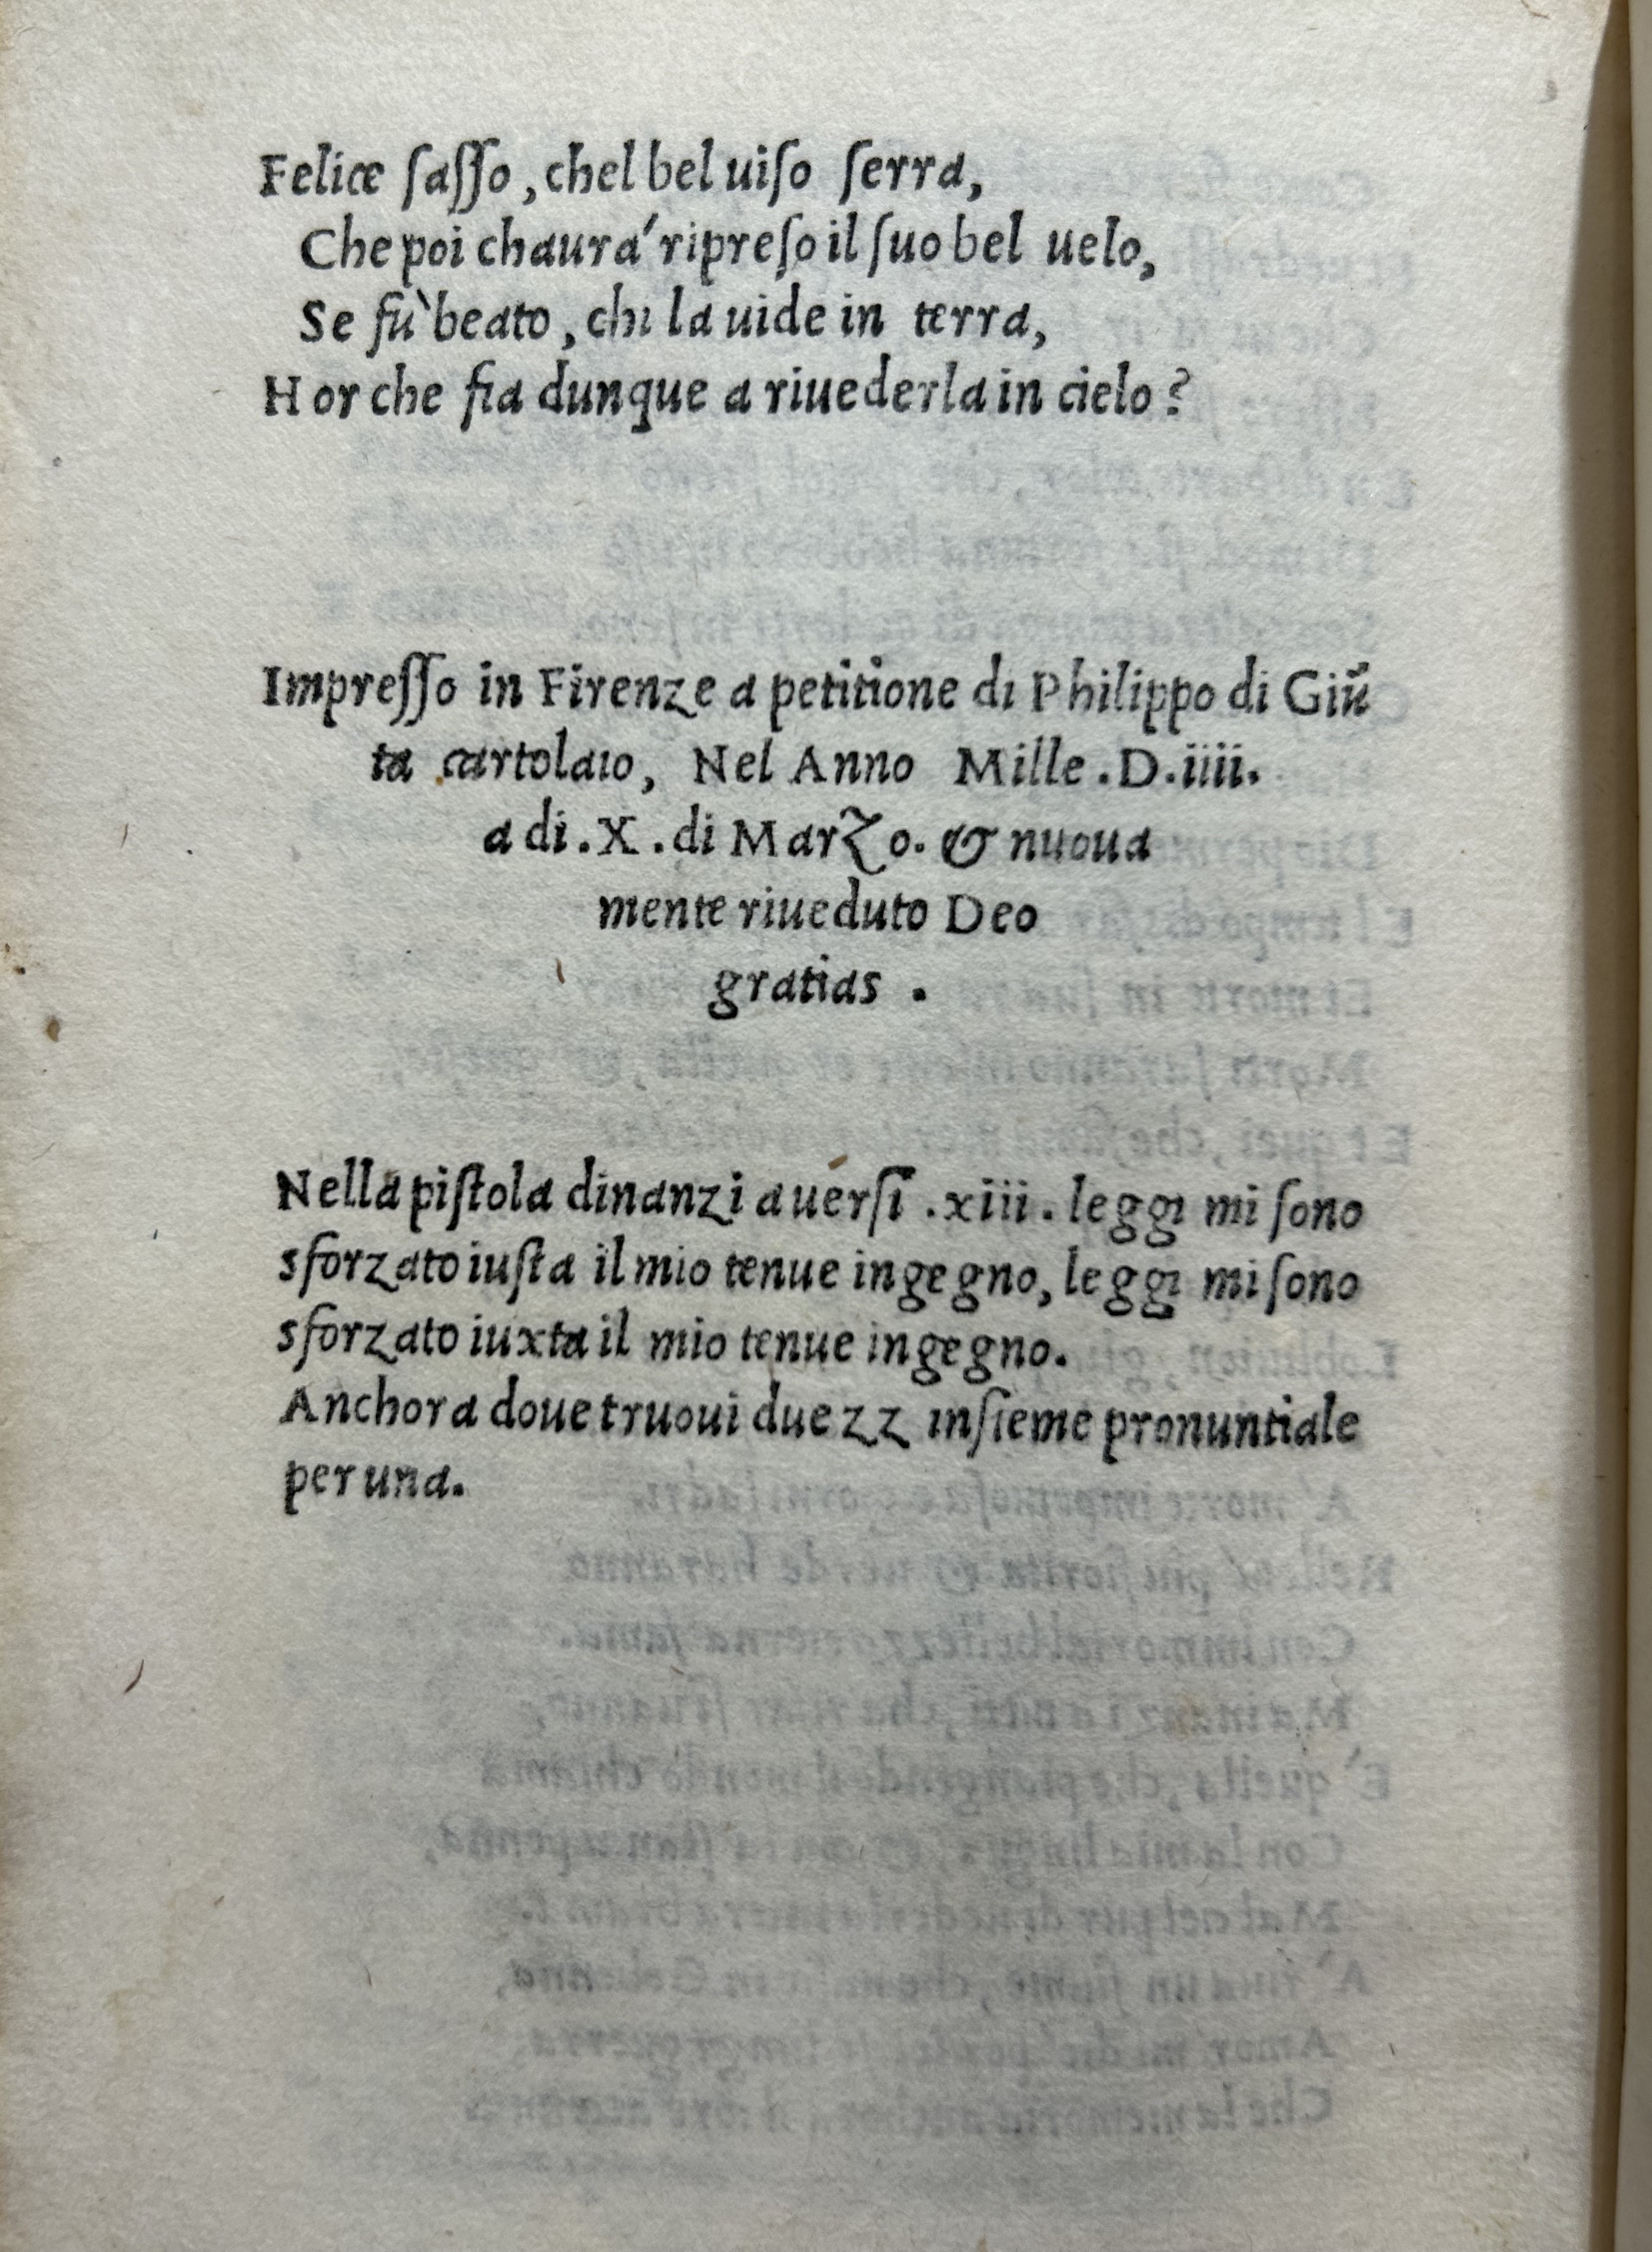 Felice ſaſſo, chel bel uiſo ſerra,
Che poi chaura´ ripreſo il ſuo bel uelo,
Se fu` beato, chi la uide in terra,
Hor che fia dunque a riuederla in cielo?
Impreſſo in Firenze a petitione di Philippo di Giũ
ta cartolaio, Nel Anno Mille.D.iiii.
a di.X.di Marzo. & nuoua
mente riueduto Deo
gratias.
Nella piſtola dinanzi a uerſi .xiii. leggi mi ſono
sforzato iuſta il mio tenue ingegno, leggi mi ſono
sforzato iuxta il mio tenue ingegno.
Anchora doue truoui due zz inſieme pronuntiale
per una.